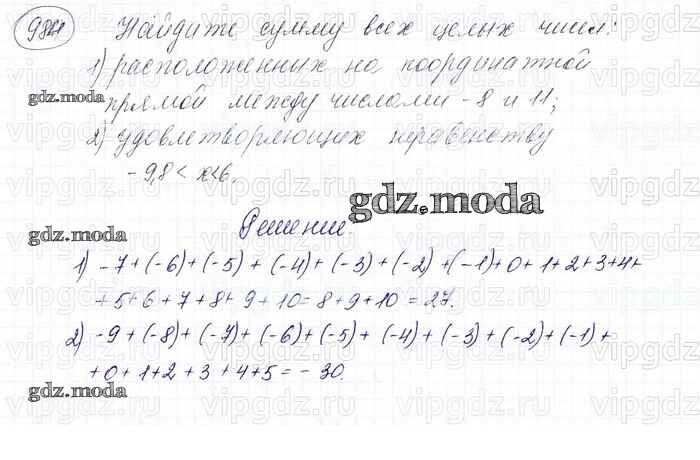 984
Найдите сумму всех целых чисел:
1) расположенных на координатной
gdz.moda
прямой между числами -8 и 11;
2) удовлетворяющих неравенству
-9,8 < x<6.
gdz.moda
Решение:
gdz.moda
1) -7+(-6)+(-5)+(-4)+(-3)+(-2)+(-1)+0+1+2+3+4+
+5+6+7+8+9+10=8+9+10=27.
2) -9+(-8)+(-7)+(-6)+(-5)+(-4)+(-3)+(-2)+(-1)+
+0+1+2+3+4+5=-30.
gdz.moda